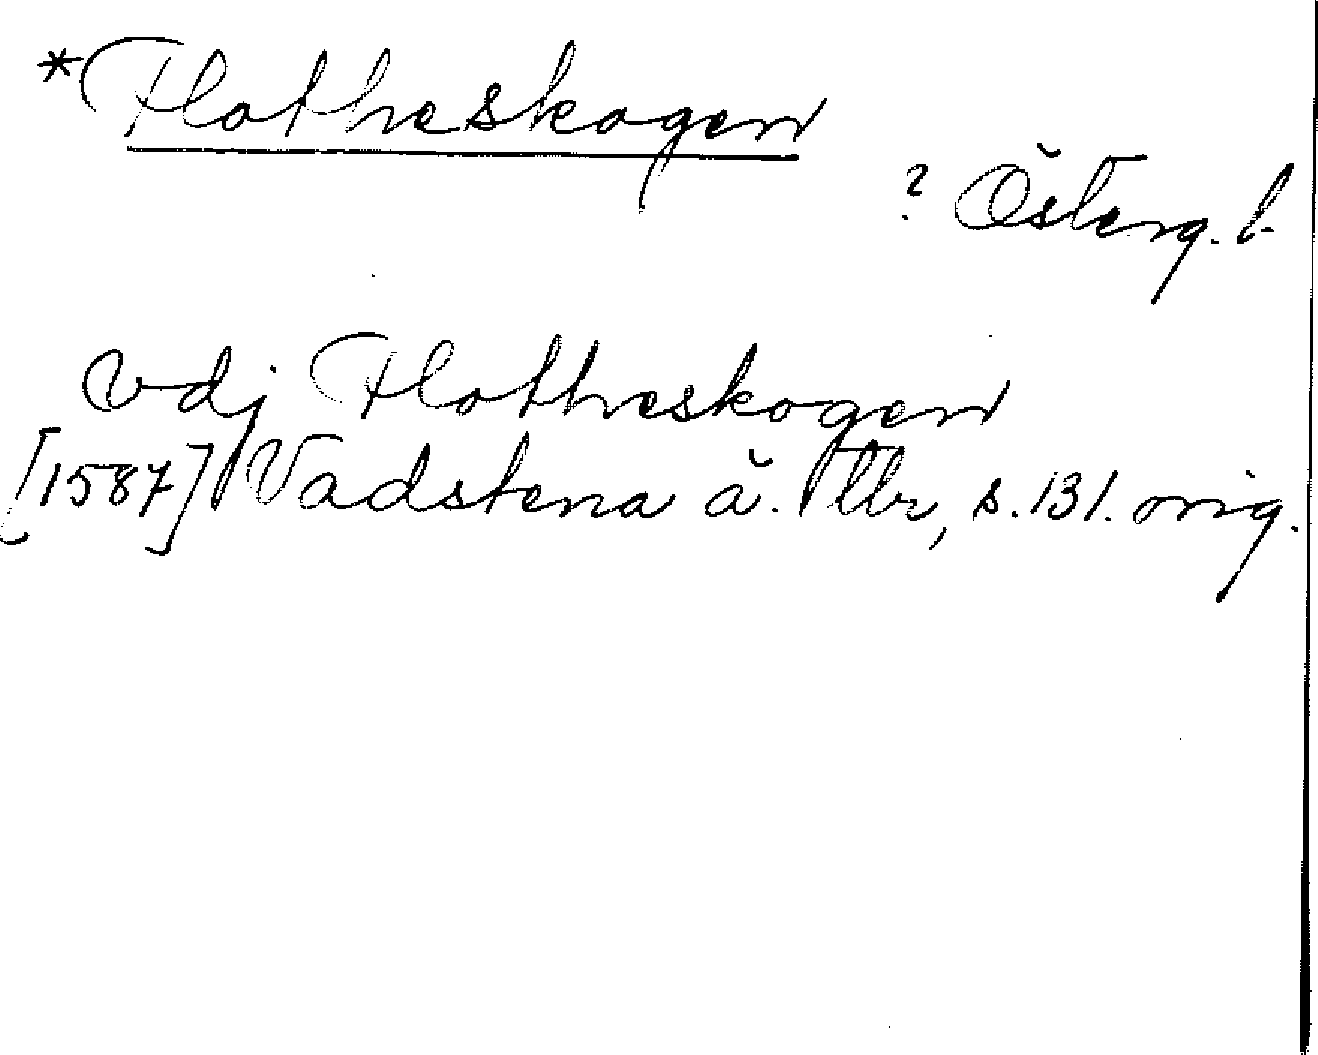 *Flotheskogen
? Österg. l.
Vdj Flotheskogen
[1587] Vadstena ä. tbr, s. 131. orig.